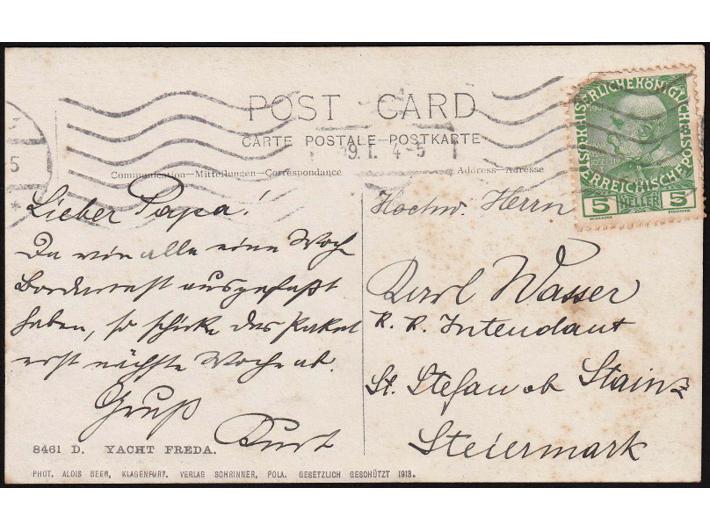 POST CARD
CARTE POSTALE - POSTKARTE
19.I. 4-5
5
Communication—Mitteilungen—Correspondance
Address—Adresse
KAISERLICHE KÖNIGLICHE ÖSTERREICHISCHE POST
5 HELLER 5
Lieber Papa!
Da wir alle eine Woche
ausgefaßt
haben, so schicke das Paket
erst nächste Woche ab.
Gruß
Kurt
Hochw. Herrn
Karl Wasser
K. K. Intendant
St. Stefan ob Stainz
Steiermark
8461 D. YACHT FREDA.
PHOT. ALOIS BEER, KLAGENFURT. VERLAG SCHRINNER, POLA. GESETZLICH GESCHÜTZT 1913.